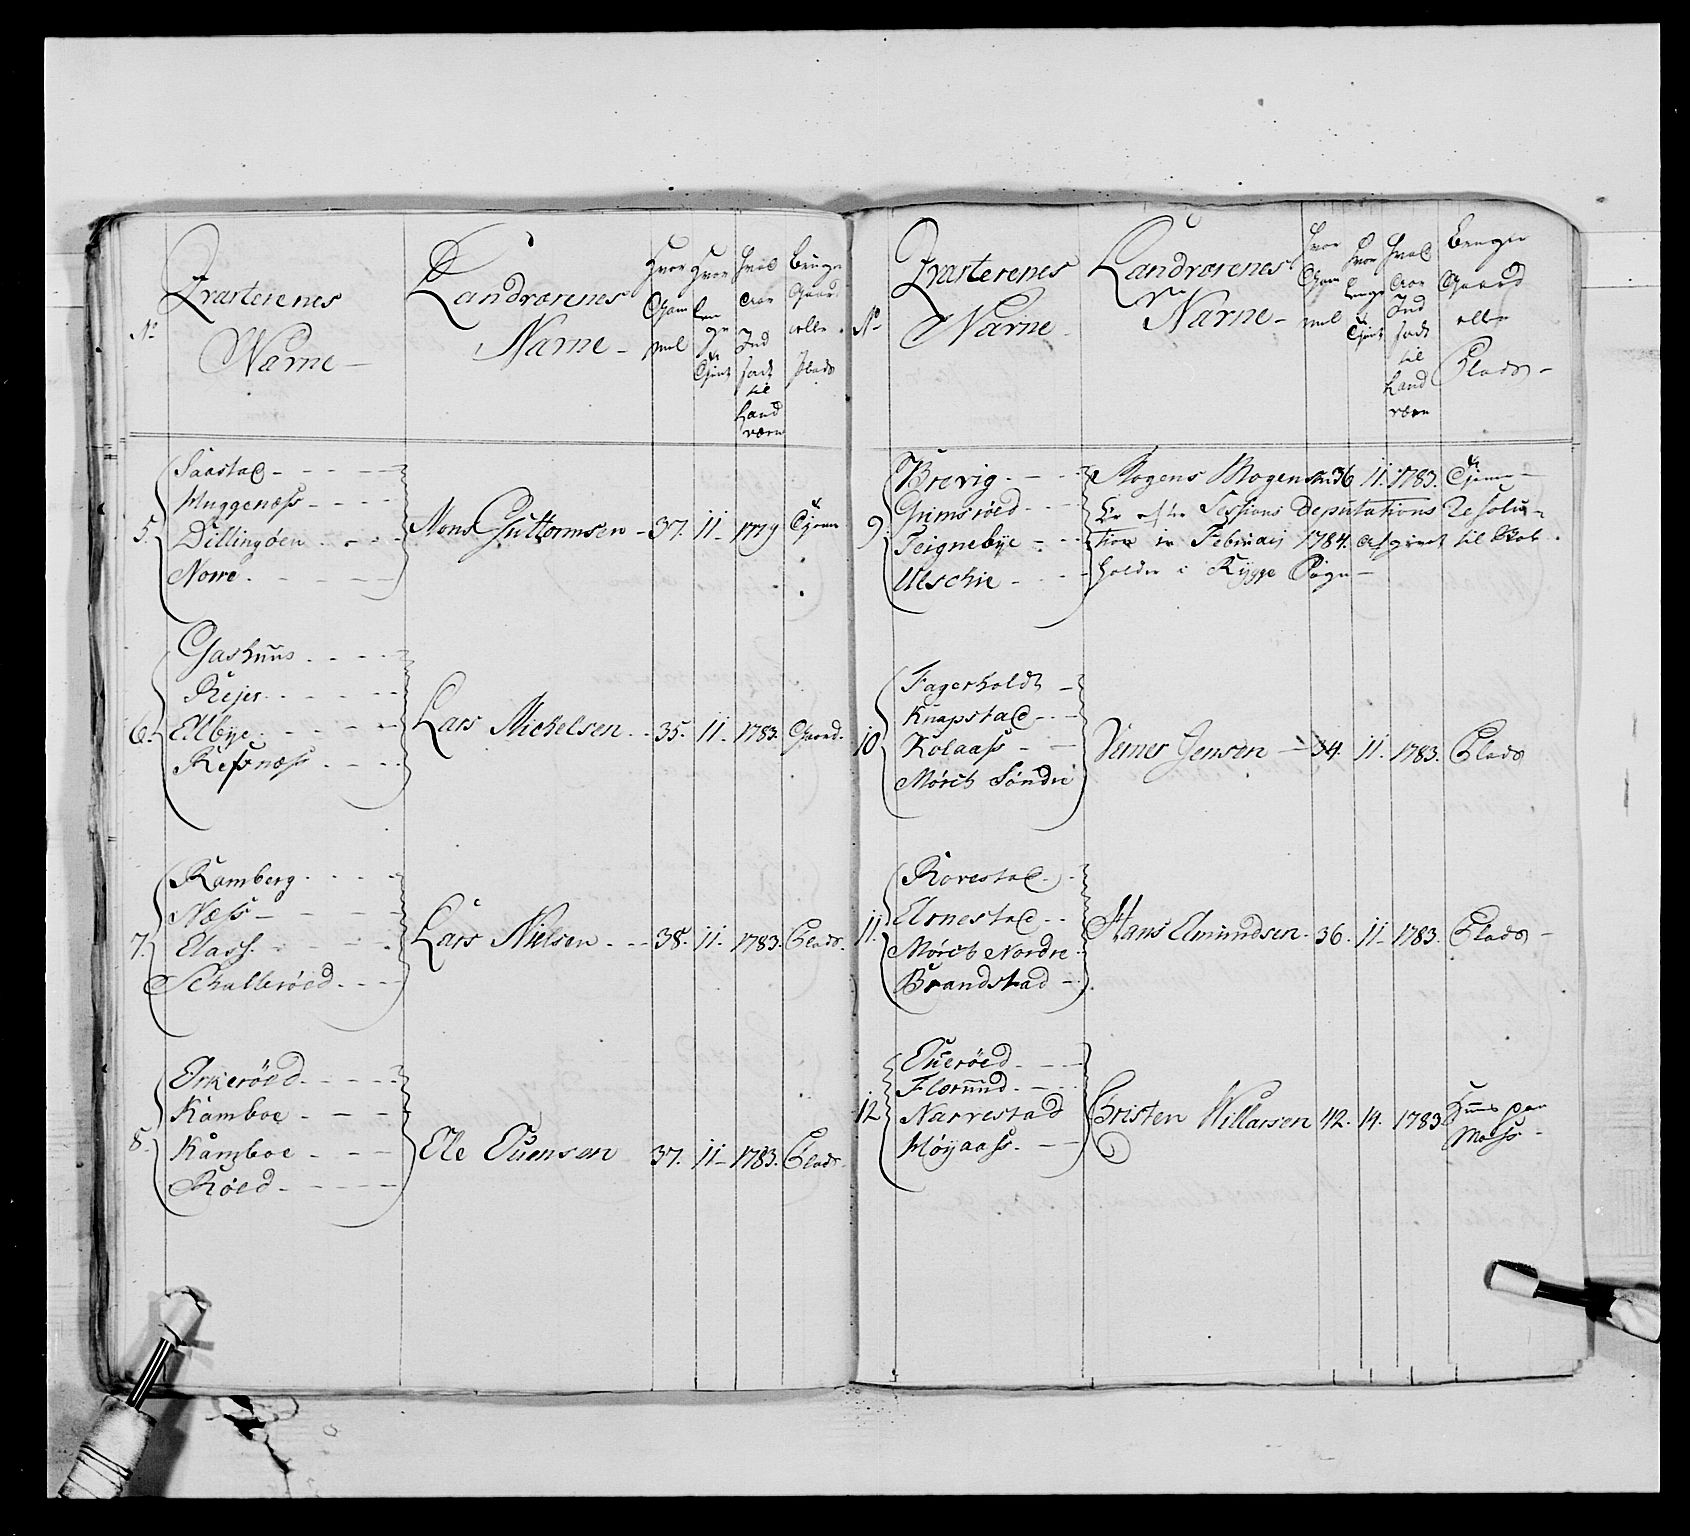 No
Qvarterenes
Nafne
Landværenes
Nafne
Hvor Gam mel
Hvor len ge Tjent
hvad Aar Ind sadt til Land værn
Bruger Gaard eller Plads
5.
Saastad
Huggenæss
Dillingøen
Norre
Mons Guttormsen 37. 11 1779 Tjener
6.
Gashuus
Rejer
Elbye
Refsnæss
Lars Michelsen 35. 11 1783. Gaard.
7.
Kamberg
Næss
Elass
Schallerøed
Lars Nielsen 38. 11. 1783. Plads.
8.
Orkerøed
Kamboe
Kamboe
Røed
Ole Svensen 37. 11 1783. Plads.
No
Qvarterenes
Nafne
Landværenes
Nafne
Hvor Gam mel
Hvor lenge Tjent
hvad Aar Ind sadt til Land værn
Bruger Gaard eller Plads
9.
Brevig
Grimsrøed
Teignebye
Ulschie
Mogens Mogensen 36 11. 1783. Tjener
Er efter Sessions Deputations Resolu-
tion i Februarij 1784. afgivet til
holder i Rygge Sogn
10
Fagerholdt
Knapstad
Kolaass
Mørch Søndre
Verner Jensen 34. 11. 1783. Plads
11.
Rørestad
Ernestad
Mørch Nordre
Brandstad
Hans Elmundsen 36. 11 1783. Plads
12
Huerøed
Floerund
Narrestad
Høyaass
Christen Willarsen 42. 14. 1783
Huus paa
Moss